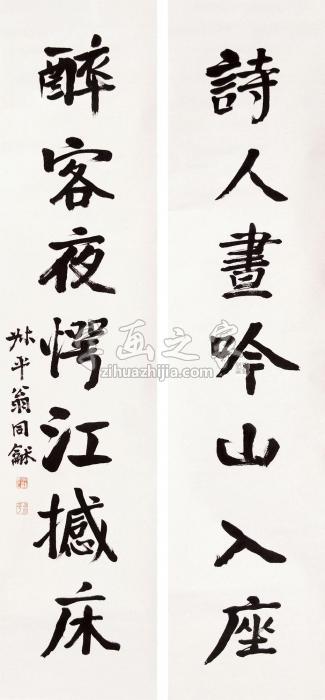 詩人晝吟山入座
醉客夜愕江撼床
尗平翁同龢
书画之家
zihuazhijia.com